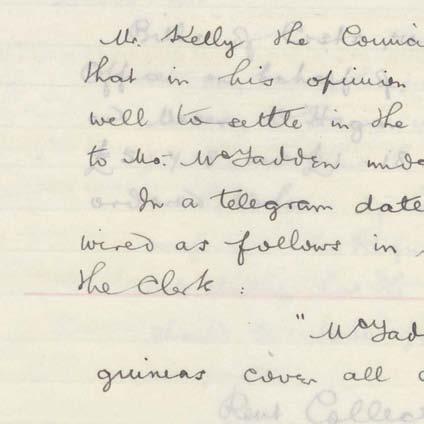 Mr. Kelly the
that in his opinion
well to settle in the
to Mr. McFadden
In a telegram date
wired as follows in
the Clerk :
" McFadd
guineas cover all
Rent Collec